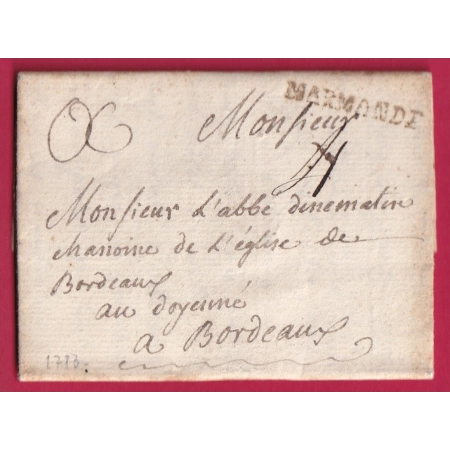 MARMONDE
Monsieur
4
Monsieur L'abbe dinematin
chanoine de L'église de
Bordeaux
au doyenné
a Bordeaux
1773.